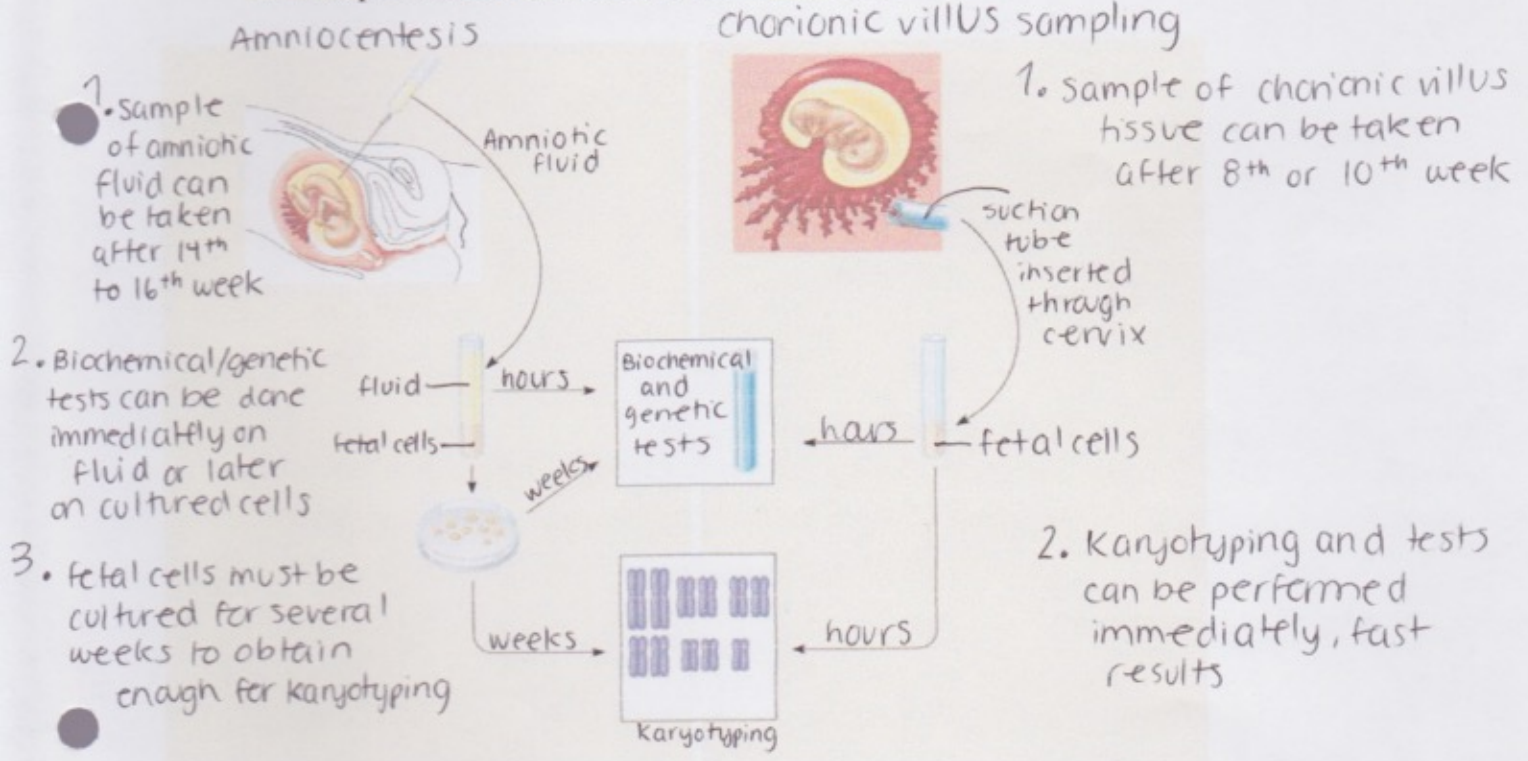 Amniocentesis
1. Sample
of amniotic
fluid can
be taken
after 14th
to 16th week
Amniotic
fluid
2. Biochemical/genetic
tests can be done
immediatly on
fluid or later
on cultured cells
fluid
fetal cells
hours
weeks
3. fetal cells must be
cultured for several
weeks to obtain
enough for karyotyping
weeks
Biochemical
and
genetic
tests
Karyotyping
chorionic villus sampling
1. Sample of chorionic villus
tissue can be taken
after 8th or 10th week
suction
tube
inserted
through
cervix
hours
fetal cells
2. Karyotyping and tests
can be performed
immediately, fast
results
hours